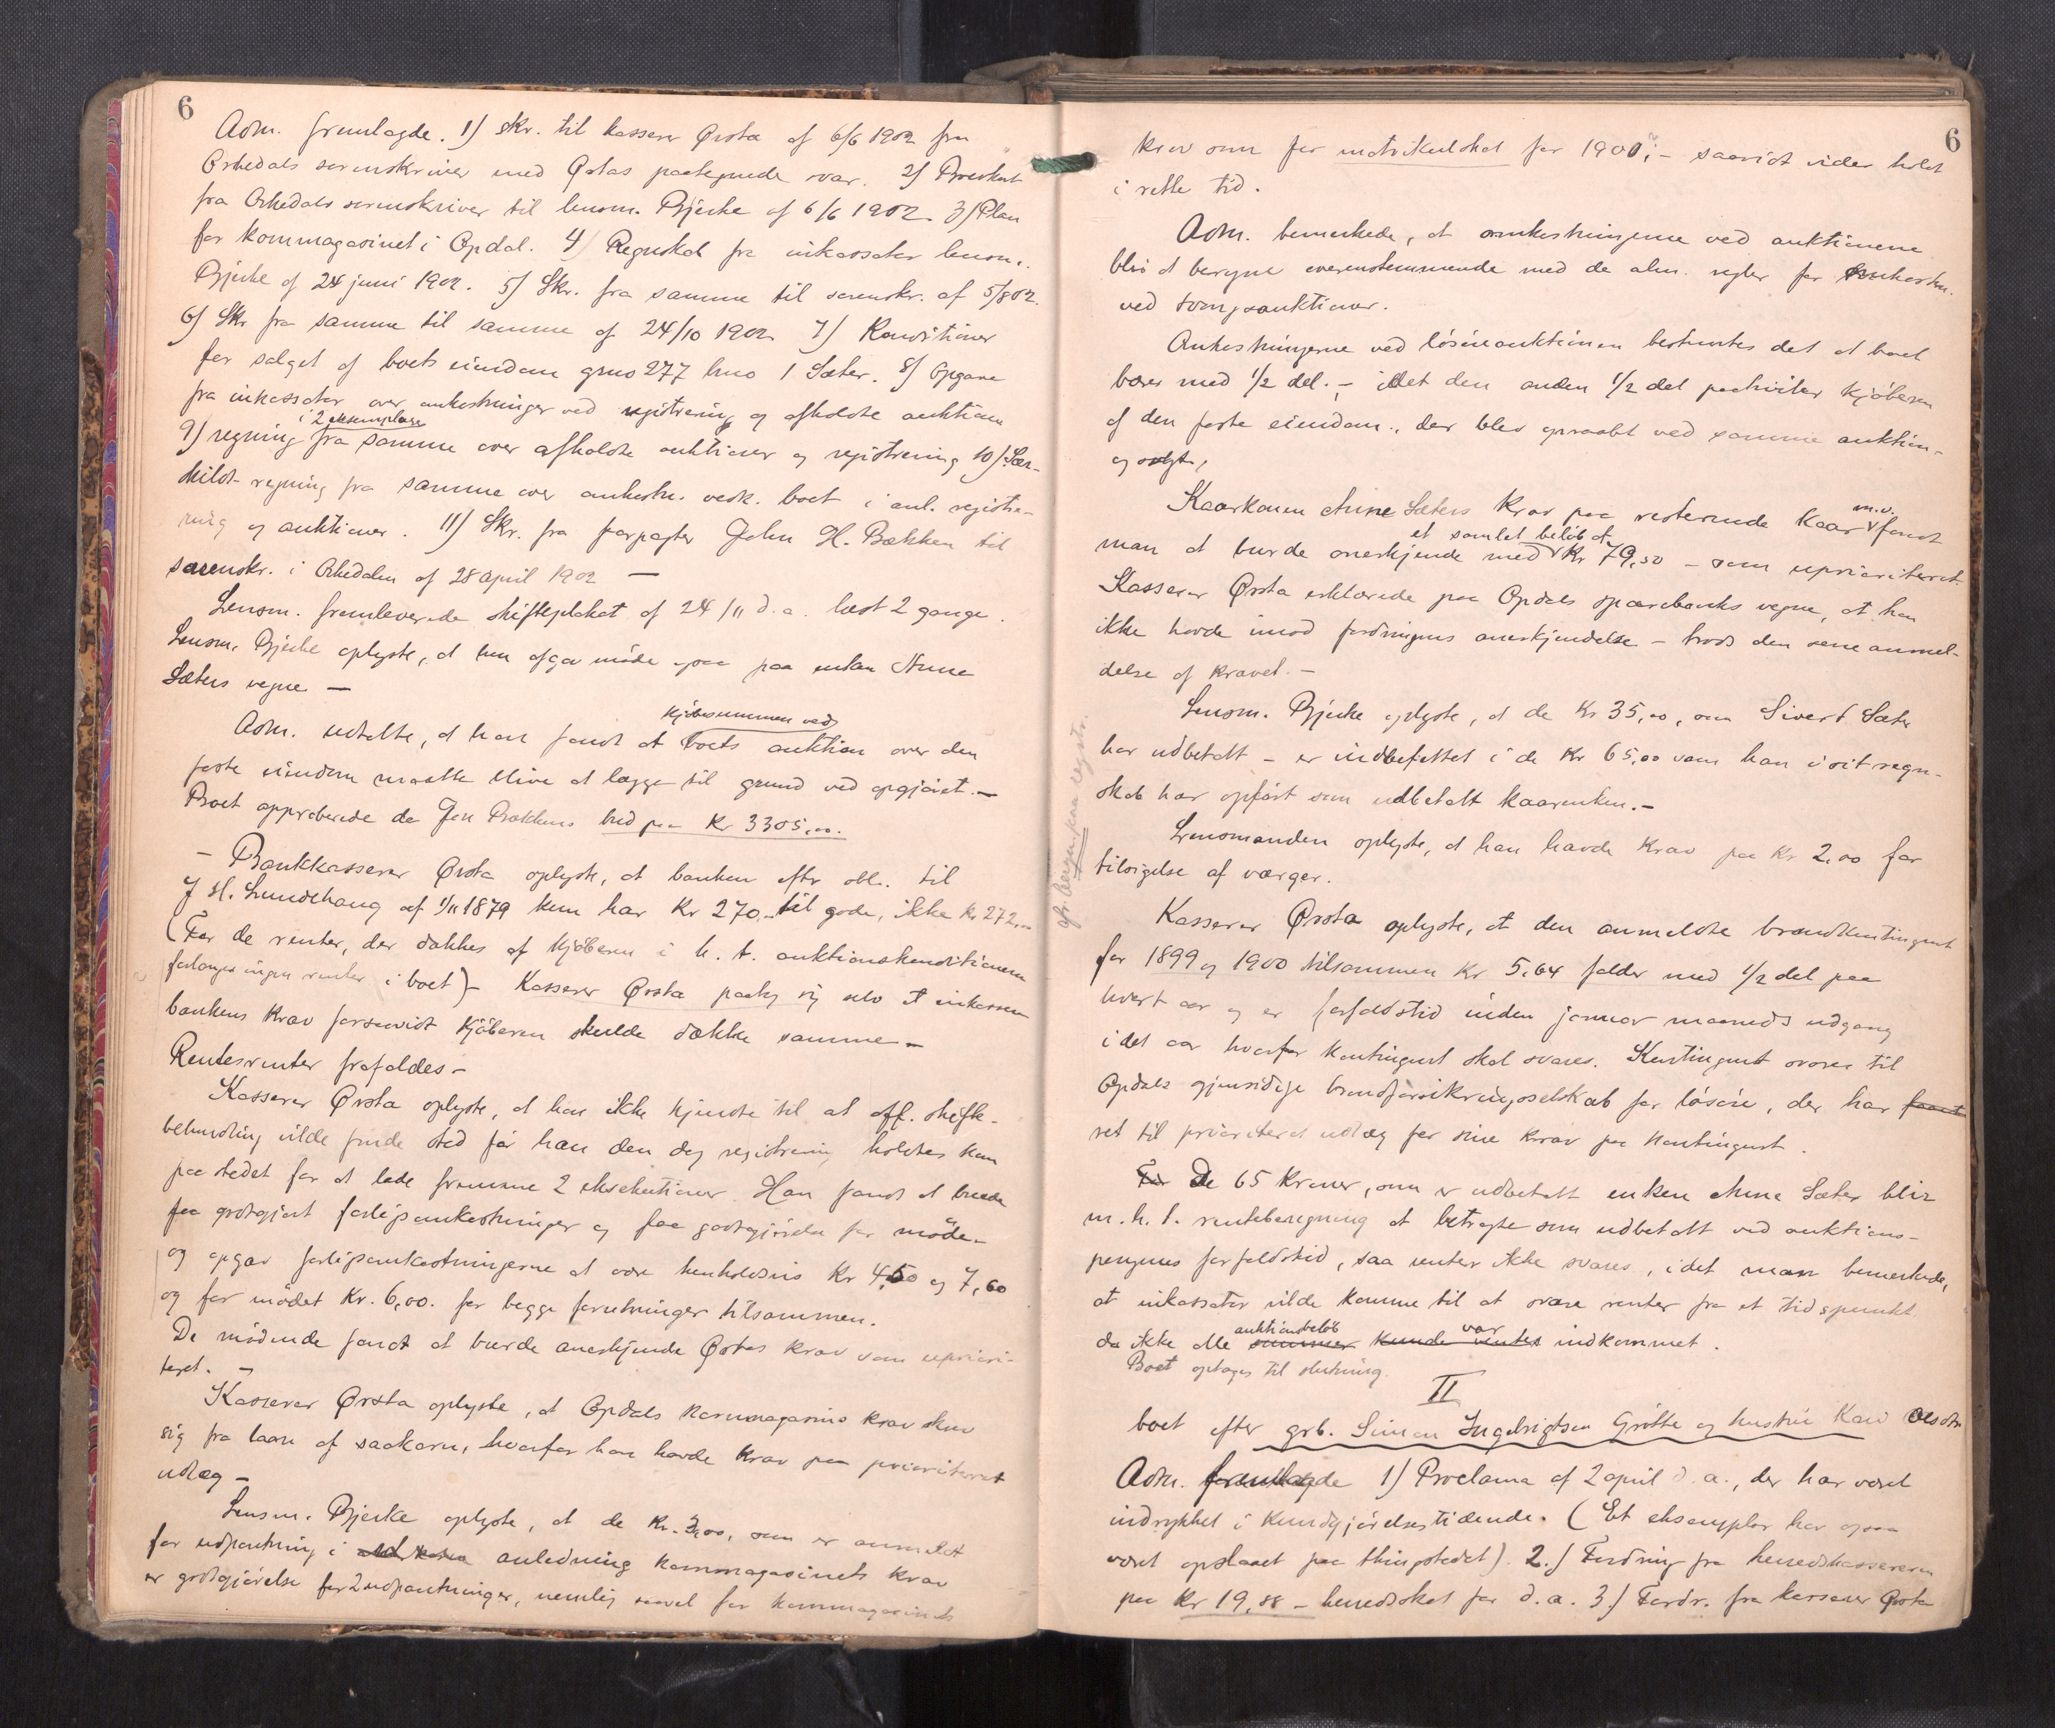 6
Adm. fremlagde. 1) Skr. til kasserer Ørsta af 6/6 1902 fra
Orkedals sorenskriver med Ørstas paategnede svar. 2) Brevkort
fra Orkedals sorenskriver til lensm. Bjerke af 6/6 1902. 3) Plan
for kornmagasinet i Opdal. 4) Regnskab fra inkassator lensm.
Bjerke af 24 juni 1902. 5) Skr. fra samme til sorenskr. af 5/8 02.
6) Skr fra samme til samme af 24/10 1902 7) Konditioner
for salget af boets eiendom gnr 277 bno 1 Sæter. 8) Opgave
fra inkassator over omkostninger ved registrering og afholdte auktioner
i 2 eksemplarer
9) regning fra samme over afholdte auktioner og registrering 10) Sær-
skildt regning fra samme over omkostn. vedk. boet i anl. registre-
ring og auktioner. 11) Skr. fra forpagter John H. Bækken til
sorenskr. i Orkedalen af 28 april 1902 —
Lensm. fremleverede skifteplakat af 24/11 d.a. læst 2 gange.
Lensm. Bjerke oplyste, at han afgav møde ogsaa paa enken Anne
Sæters vegne —
kjøbesummen ved
Adm. udtalte, at han fandt at boets auktion over den
faste eiendom maatte blive at lægge til grund ved opgjøret. —
Boet approberede da Jon Bækkens bud paa Kr 3305,00.
– Bankkasserer Ørsta oplyste, at banken efter obl. til
J H. Lundehaug af 1/11 1879 kun har Kr 270,– til gode, ikke kr 272,00
(For de renter, der dækkes af kjøberen i h. t. auktionskonditionerne
forlanges ingen renter i boet) – Kasserer Ørsta paatog sig selv at inkassere
bankens krav forsaavidt kjøberen skulde dække samme –
Rentesrenter frafaldes –
Kasserer Ørsta oplyste, at han ikke kjendte til at off. skifte-
behandling vilde finde sted før han den dag registrering holdtes kom
paa stedet for at lade fremme 2 eksekutioner. Han fandt at burde
faa godtgjort forligsomkostninger og faa godtgjørelse for møde –
og opgav forligsomkostningerne at være henholdsvis Kr 4,50 og 7,60
og for mødet Kr. 6,00. for begge forretninger tilsammen.
De mødende fandt at burde anerkjende Ørstas krav som upriori-
teret. –
Kasserer Ørsta oplyste, at Opdals kornmagasins krav skrev
sig fra laan af saakorn, hvorfor han havde krav paa prioriteret
udlæg –
Lensm. Bjerke oplyste, at de Kr. 3,00, som er anmeldt
for udpantning i anledning kornmagasinets krav
er godtgjørelse for 2 udpantninger, nemlig saavel for kornmagasinets
6
krav som for matrikulskat for 1900,– saavidt vides holdt
i rette tid.
Adm. bemerkede, at omkostningerne ved auktionerne
blir at beregne overensstemmende med de alm. regler for omkostn.
ved tvangsauktioner.
Omkostningerne ved løsøreauktionen bestemtes det at boet
bærer med 1/2 del. – idet den anden 1/2 del paahviler kjøberen
af den faste eiendom, der blev opraabt ved samme auktion –
og solgt,
Kaarkonen Anne Sæters krav paa resterende kaar m.v. fandt
et samlet beløb af
man at burde anerkjende med Kr 79,50 – som uprioriteret.
Kasserer Ørsta erklærede paa Opdals sparebanks vegne, at han
ikke havde imod fordringens anerkjendelse – trods den sene anmel-
delse af kravet. –
Lensm. Bjerke oplyste, at de Kr 35,00, som Sivert Sæter
har udbetalt – er indbefattet i de Kr 65,00 som han i sit regn-
skab har opført som udbetalt kaarenken. –
Lensmanden oplyste, at han havde krav paa Kr 2,00 for
tilsigelse af værger.
Kasserer Ørsta oplyste, at den anmeldte brandkontingent
for 1899 og 1900 tilsammen Kr 5,64 falder med 1/2 del paa
hvert aar og er forfaldstid inden januar maaneds udgang
i det aar hvorfor kontingent skal svares. Kontingent svares til
Opdals gjensidige brandforsikringsselskab for løsøre, der har faaet
ret til prioriteret udlæg for sine krav paa kontingent.
For De 65 Kroner, som er udbetalt enken Anne Sæter blir
m. h. t. renteberegning at betragte som udbetalt ved auktions-
pengenes forfaldstid, saa renter ikke svares, idet man bemerkede,
at inkassator vilde komme til at svare renter fra et tidspunkt
auktionsbeløb var
da ikke alle summer kunde ventes indkommet.
Boet optages til slutning.
II
boet efter grb. Simen Ingebrigtsen Grøtte og hustru Kari Olsdtr
Adm. fremlagde 1) Proclama af 2 april d. a., der har været
indrykket i Kundgjørelsestidende. (Et eksemplar har ogsaa
været opslaaet paa thingstedet). 2.) Fordring fra herredskassereren
paa Kr 19,88 – herredsskat for d. a. 3.) Fordr. fra kasserer Ørsta